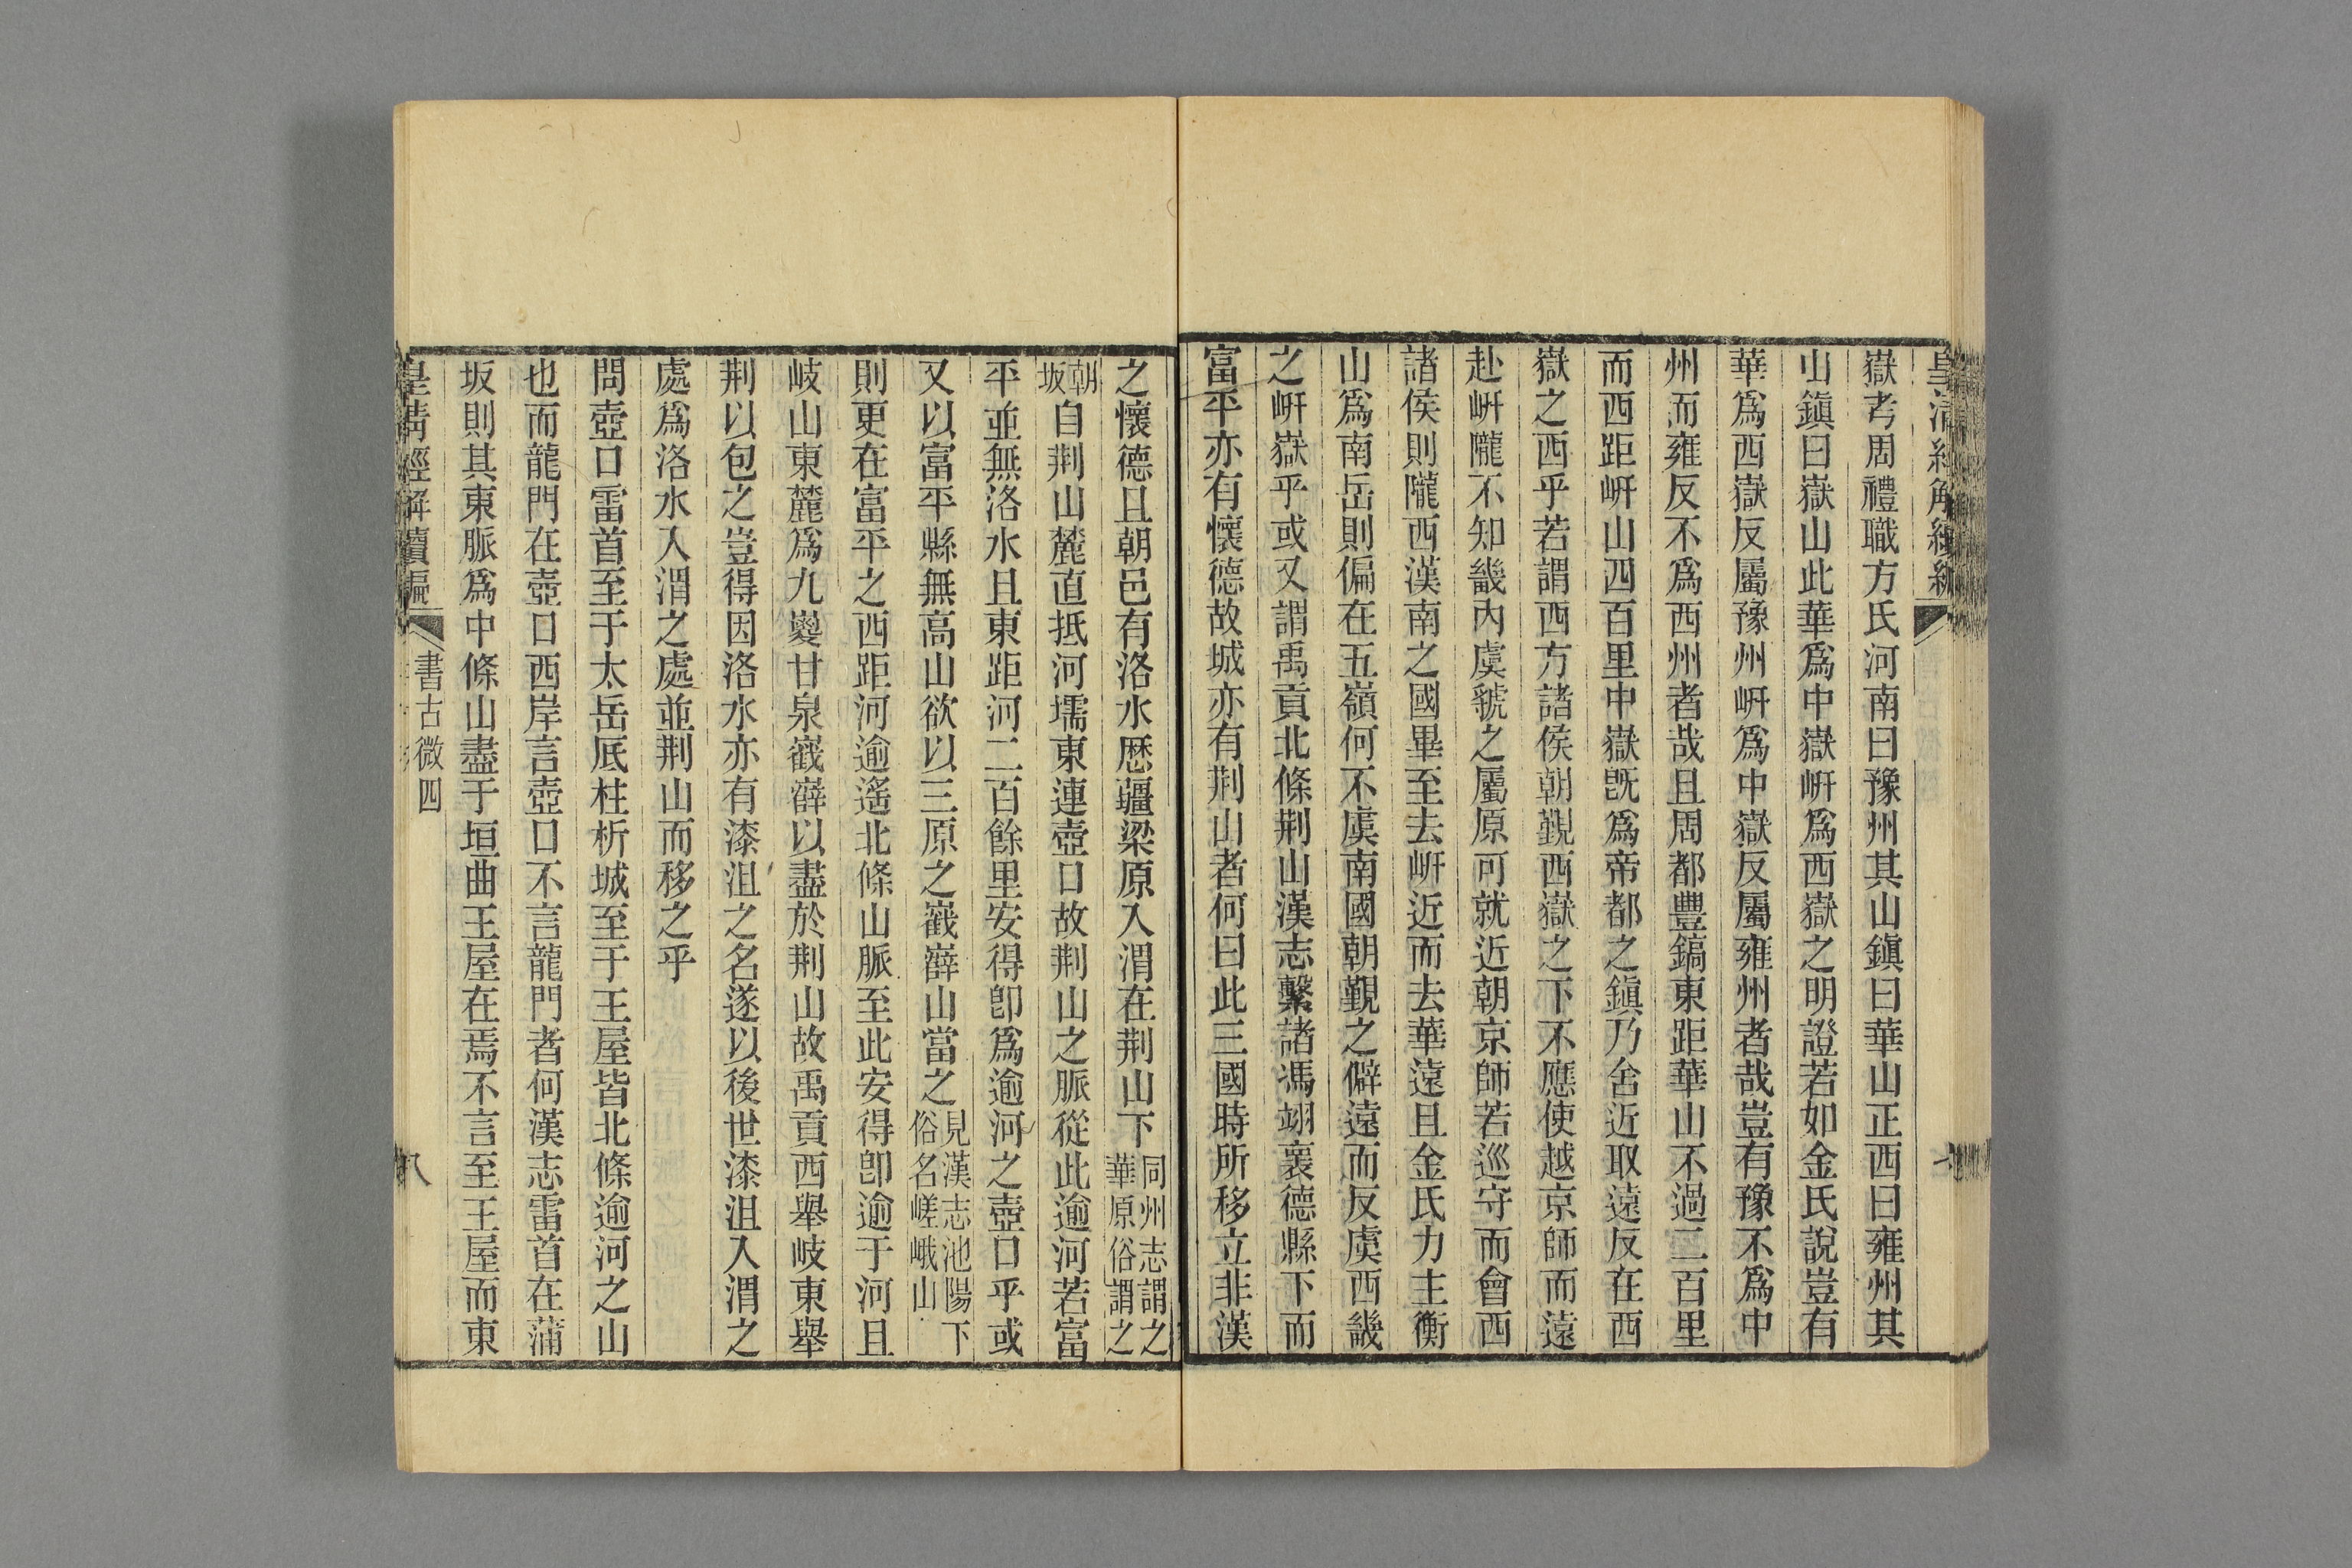 嶽考周禮職方氏河南曰豫州其山鎭曰華山正西曰雍州其
山鎭曰嶽山此華爲中嶽岍爲西嶽之明證若如金氏說豈有
華爲西嶽反屬豫州岍爲中嶽反屬雍州者哉豈有豫不爲中
州而雍反不爲西州者哉且周都豐鎬東距華山不過二百里
而西距岍山四百里中嶽旣爲帝都之鎭乃舍近取遠反在西
嶽之西乎若謂西方諸侯朝覲西嶽之下不應使越京師而遠
赴岍隴不知畿內虞虢之屬原可就近朝京師若巡守而會西
諸侯則隴西漢南之國畢至去岍近而去華遠且金氏力主衡
山爲南岳則偏在五嶺何不虞南國朝覲之僻遠而反虞西畿
之岍嶽乎或又謂禹貢北條荆山漢志繫諸馮翊襄德縣下而
富平亦有懷德故城亦有荆山者何曰此三國時所移立非漢
之懷德且朝邑有洛水歷疆梁原入渭在荆山下同州志謂之華原俗謂之
朝坂自荆山麓直抵河壖東連壺口故荆山之脈從此逾河若富
平並無洛水且東距河二百餘里安得卽爲逾河之壺口乎或
又以富平縣無高山欲以三原之嶻嶭山當之見漢志池陽下俗名嵯峨山
則更在富平之西距河逾遙北條山脈至此安得卽逾于河且
岐山東麓爲九嵏甘泉嶻嶭以盡於荆山故禹貢西舉岐東舉
荆以包之豈得因洛水亦有漆沮之名遂以後世漆沮入渭之
處爲洛水入渭之處並荆山而移之乎
問壺口雷首至于太岳厎柱析城至于王屋皆北條逾河之山
也而龍門在壺口西岸言壺口不言龍門者何漢志雷首在蒲
坂則其東脈爲中條山盡于垣曲王屋在焉不言至王屋而東
皇清經解續編 書古微四 八